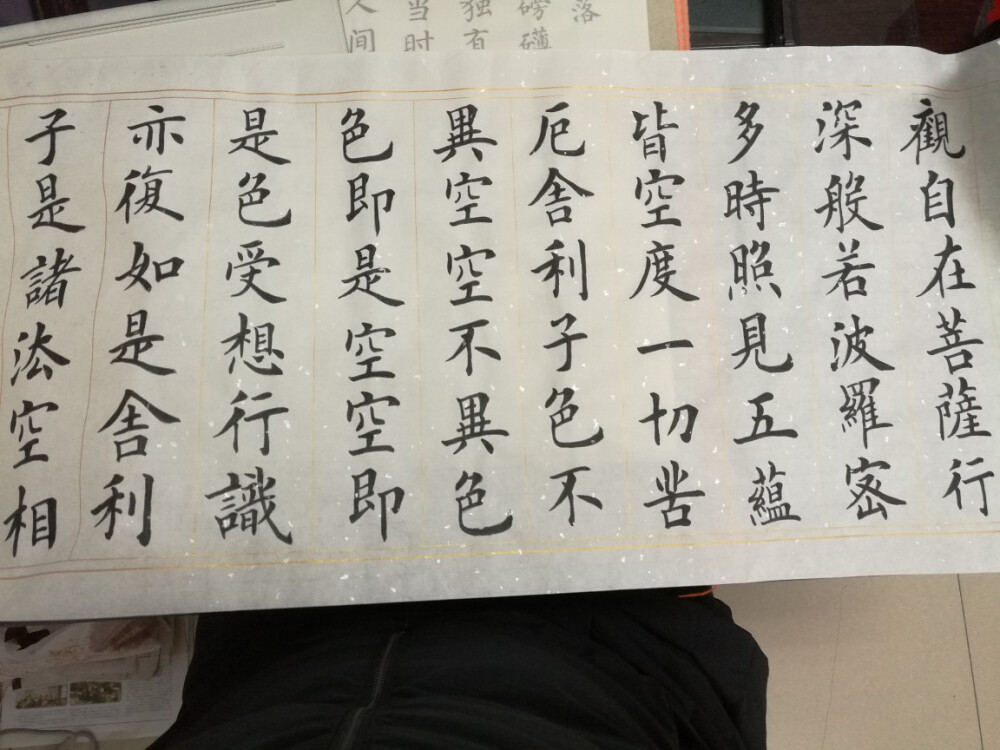 觀自在菩薩行
深般若波羅宻
多時照見五藴
皆空度一切苦
厄舎利子色不
異空空不異色
色即是空空即
是色受想行識
亦復如是舎利
子是諸法空相
落
磅礴
独有
当时
人间